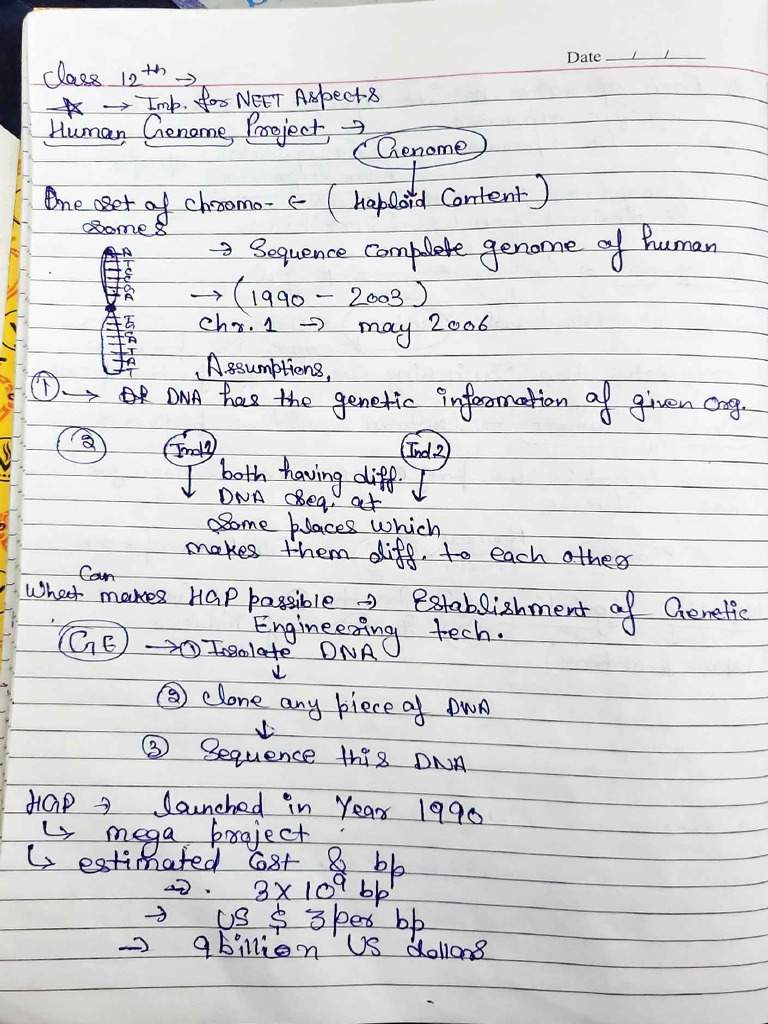 Date __/__/__
Class 12th →
☆ → Imp. for NEET Aspects
Human Genome Project →
Genome
One set of chromo- ← (haploid Content)
somes
→ Sequence complete genome of human
→ (1990 - 2003)
Chr. 1 → may 2006
Assumptions,
① → DNA has the genetic information of given org.
② Ind 1 Ind 2
both having diff.
DNA Seq. at
Some places which
makes them diff. to each other
Can
What makes HGP possible → Establishment of Genetic
Engineering tech.
GE → ① Isolate DNA
↓
② Clone any piece of DNA
↓
③ Sequence this DNA
HGP → launched in Year 1990
↳ mega project
↳ estimated Cost & bp
→ . 3 X 10⁹ bp
→ US $ 3 per bp
→ 9 billion US dollars